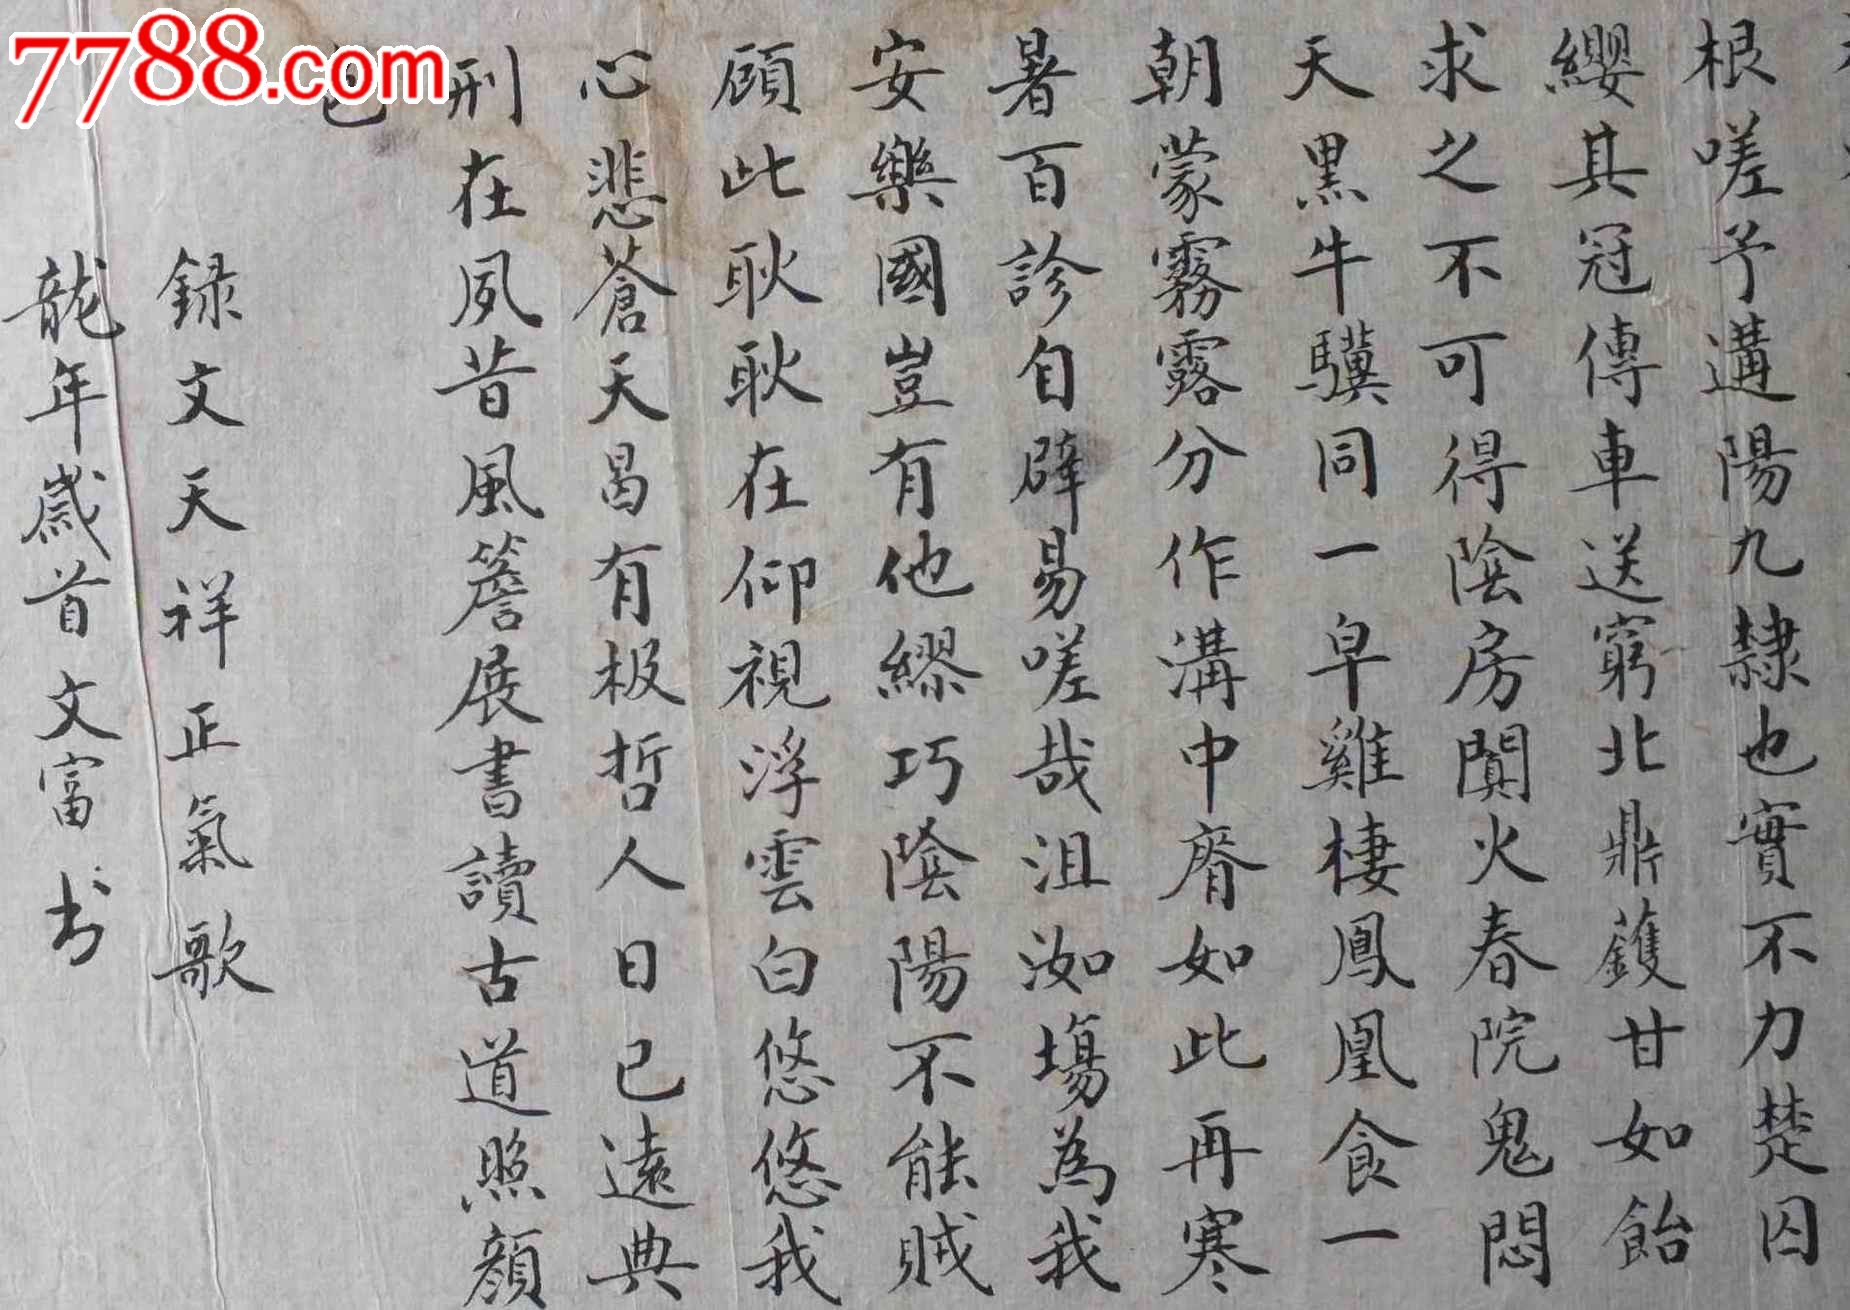 根嗟予遘陽九隸也實不力楚囚
纓其冠傳車送窮北鼎鑊甘如飴
求之不可得陰房闃火春院鬼悶
天黑牛驥同一皁雞棲鳳凰食一
朝蒙霧露分作溝中瘠如此再寒
暑百診自辟易嗟哉沮洳場為我
安樂國豈有他繆巧陰陽不能賊
顧此耿耿在仰視浮雲白悠悠我
心悲蒼天曷有极哲人日已遠典
刑在夙昔風簷展書讀古道照顏
色
録文天祥正氣歌
龍年歲首文富书
7788.com